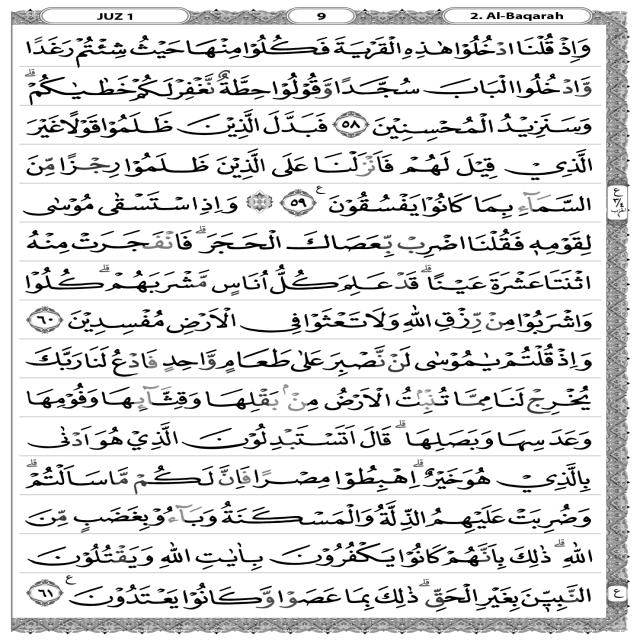 JUZ 1 9 2. Al-Baqarah
وَاِذْ قُلْنَا ادْخُلُوْا هٰذِهِ الْقَرْيَةَ فَكُلُوْا مِنْهَا حَيْثُ شِئْتُمْ رَغَدًا
وَّادْخُلُوا الْبَابَ سُجَّدًا وَّقُوْلُوْا حِطَّةٌ نَّغْفِرْ لَكُمْ خَطٰيٰكُمْ ۗ
وَسَنَزِيْدُ الْمُحْسِنِيْنَ ٥٨ فَبَدَّلَ الَّذِيْنَ ظَلَمُوْا قَوْلًا غَيْرَ
الَّذِيْ قِيْلَ لَهُمْ فَاَنْزَلْنَا عَلَى الَّذِيْنَ ظَلَمُوْا رِجْزًا مِّنَ
السَّمَاۤءِ بِمَا كَانُوْا يَفْسُقُوْنَ ࣖ ٥٩ ۞ وَاِذِ اسْتَسْقٰى مُوْسٰى
لِقَوْمِهٖ فَقُلْنَا اضْرِبْ بِّعَصَاكَ الْحَجَرَ ۗ فَانْفَجَرَتْ مِنْهُ
اثْنَتَا عَشْرَةَ عَيْنًا ۗ قَدْ عَلِمَ كُلُّ اُنَاسٍ مَّشْرَبَهُمْ ۗ كُلُوْا
وَاشْرَبُوْا مِنْ رِّزْقِ اللّٰهِ وَلَا تَعْثَوْا فِى الْاَرْضِ مُفْسِدِيْنَ ٦٠
وَاِذْ قُلْتُمْ يٰمُوْسٰى لَنْ نَّصْبِرَ عَلٰى طَعَامٍ وَّاحِدٍ فَادْعُ لَنَا رَبَّكَ
يُخْرِجْ لَنَا مِمَّا تُنْۢبِتُ الْاَرْضُ مِنْۢ بَقْلِهَا وَقِثَّاۤىِٕهَا وَفُوْمِهَا
وَعَدَسِهَا وَبَصَلِهَا ۗ قَالَ اَتَسْتَبْدِلُوْنَ الَّذِيْ هُوَ اَدْنٰى
بِالَّذِيْ هُوَ خَيْرٌ ۗ اِهْبِطُوْا مِصْرًا فَاِنَّ لَكُمْ مَّا سَاَلْتُمْ ۗ
وَضُرِبَتْ عَلَيْهِمُ الذِّلَّةُ وَالْمَسْكَنَةُ وَبَاۤءُوْ بِغَضَبٍ مِّنَ
اللّٰهِ ۗ ذٰلِكَ بِاَنَّهُمْ كَانُوْا يَكْفُرُوْنَ بِاٰيٰتِ اللّٰهِ وَيَقْتُلُوْنَ
النَّبِيّٖنَ بِغَيْرِ الْحَقِّ ۗ ذٰلِكَ بِمَا عَصَوْا وَّكَانُوْا يَعْتَدُوْنَ ࣖ ٦١